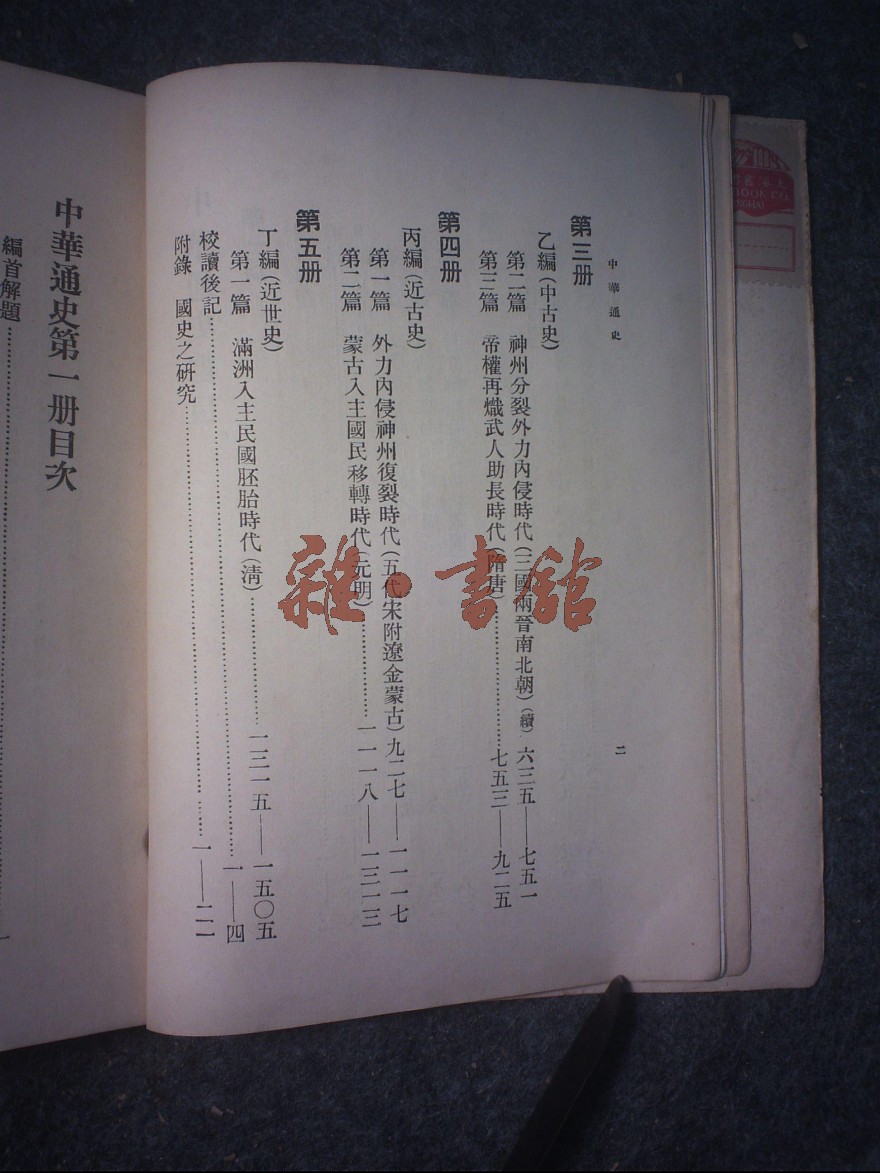 中華通史
二
第三册
乙編(中古史)
第二篇 神州分裂外力內侵時代(三國兩晉南北朝)(續)六三五——七五一
第三篇 帝權再熾武人助長時代(隋唐)……七五三——九二五
第四册
丙編(近古史)
第一篇 外力內侵神州復裂時代(五代宋附遼金蒙古)九二七——一一一七
第二篇 蒙古入主國民移轉時代(元明)……一一一八——一三一三
第五册
丁編(近世史)
第一篇 滿洲入主民國胚胎時代(清)……一三一五——一五〇五
校讀後記……一——四
附錄 國史之研究……一——二一
中華通史第一册目次
編首解題……一
雜·書館
BOOK